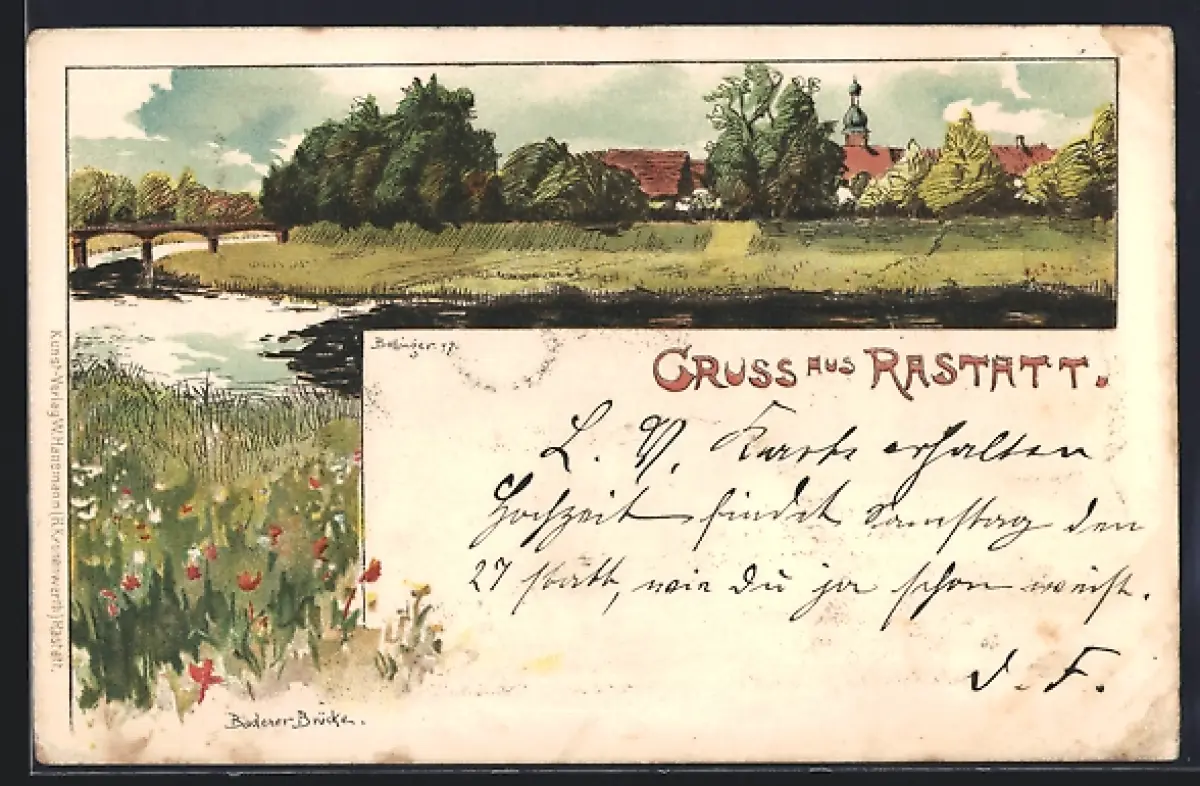 Bolinger 97.
GRUSS AUS RASTATT.
L. V. Karte erhalten
Hochzeit findet Samstag den
27 statt, wie Du ja schon weist.
d. F.
Baderer-Brücke.
Kunst-Verlag W. Hanemann (H. Kronenwerth) Rastatt.